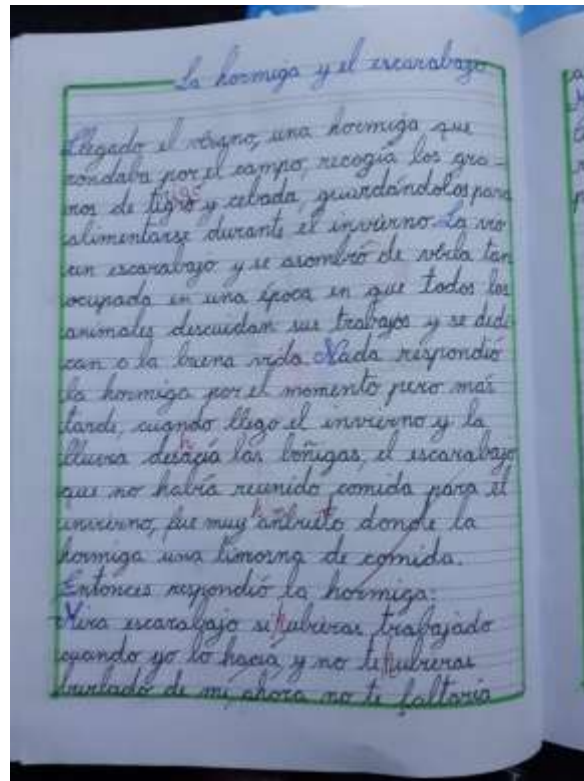 La hormiga y el escarabajo
Llegado el verano, una hormiga que
rondaba por el campo, recogía los gra-
nos de tigro y cebada, guardándolos para
alimentarse durante el invierno. La vio
un escarabajo y se asombró de verla tan
ocupada en una época en que todos los
animales descuidan sus trabajos y se dedi
can a la buena vida. Nada respondió
la hormiga por el momento pero mas
tarde, cuando llego el invierno y la
lluvia deshacia las boñigas, el escarabajo
que no había reunido comida para el
invierno, fue muy donde la
hormiga una limorna de comida.
Entonces respondió la hormiga:
Mira escarabajo si hubieras trabajado
cuando yo lo hacia, y no te hubieras
burlado de mi, ahora no te faltaria